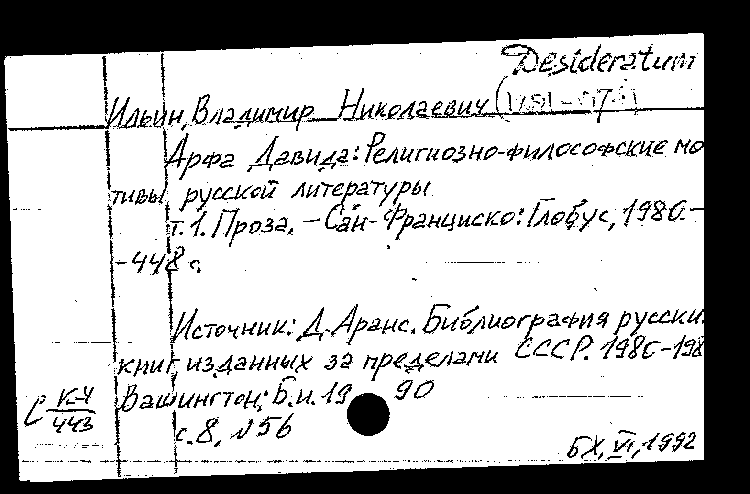 Desideratum
Ильин, Владимир Николаевич
Арфа Давида: Религиозно-философские мо
тивы русской литературы
т.1. Проза. – Сан-Франциско: Глобус, 1980.–
-448 с.
Источник: Д. Аранс. Библиография русски
книг, изданных за пределами СССР. 1980-198
С К-4 Вашингтон; Б.и. 19 90
443
с.8, №56
БХ, VI, 1992